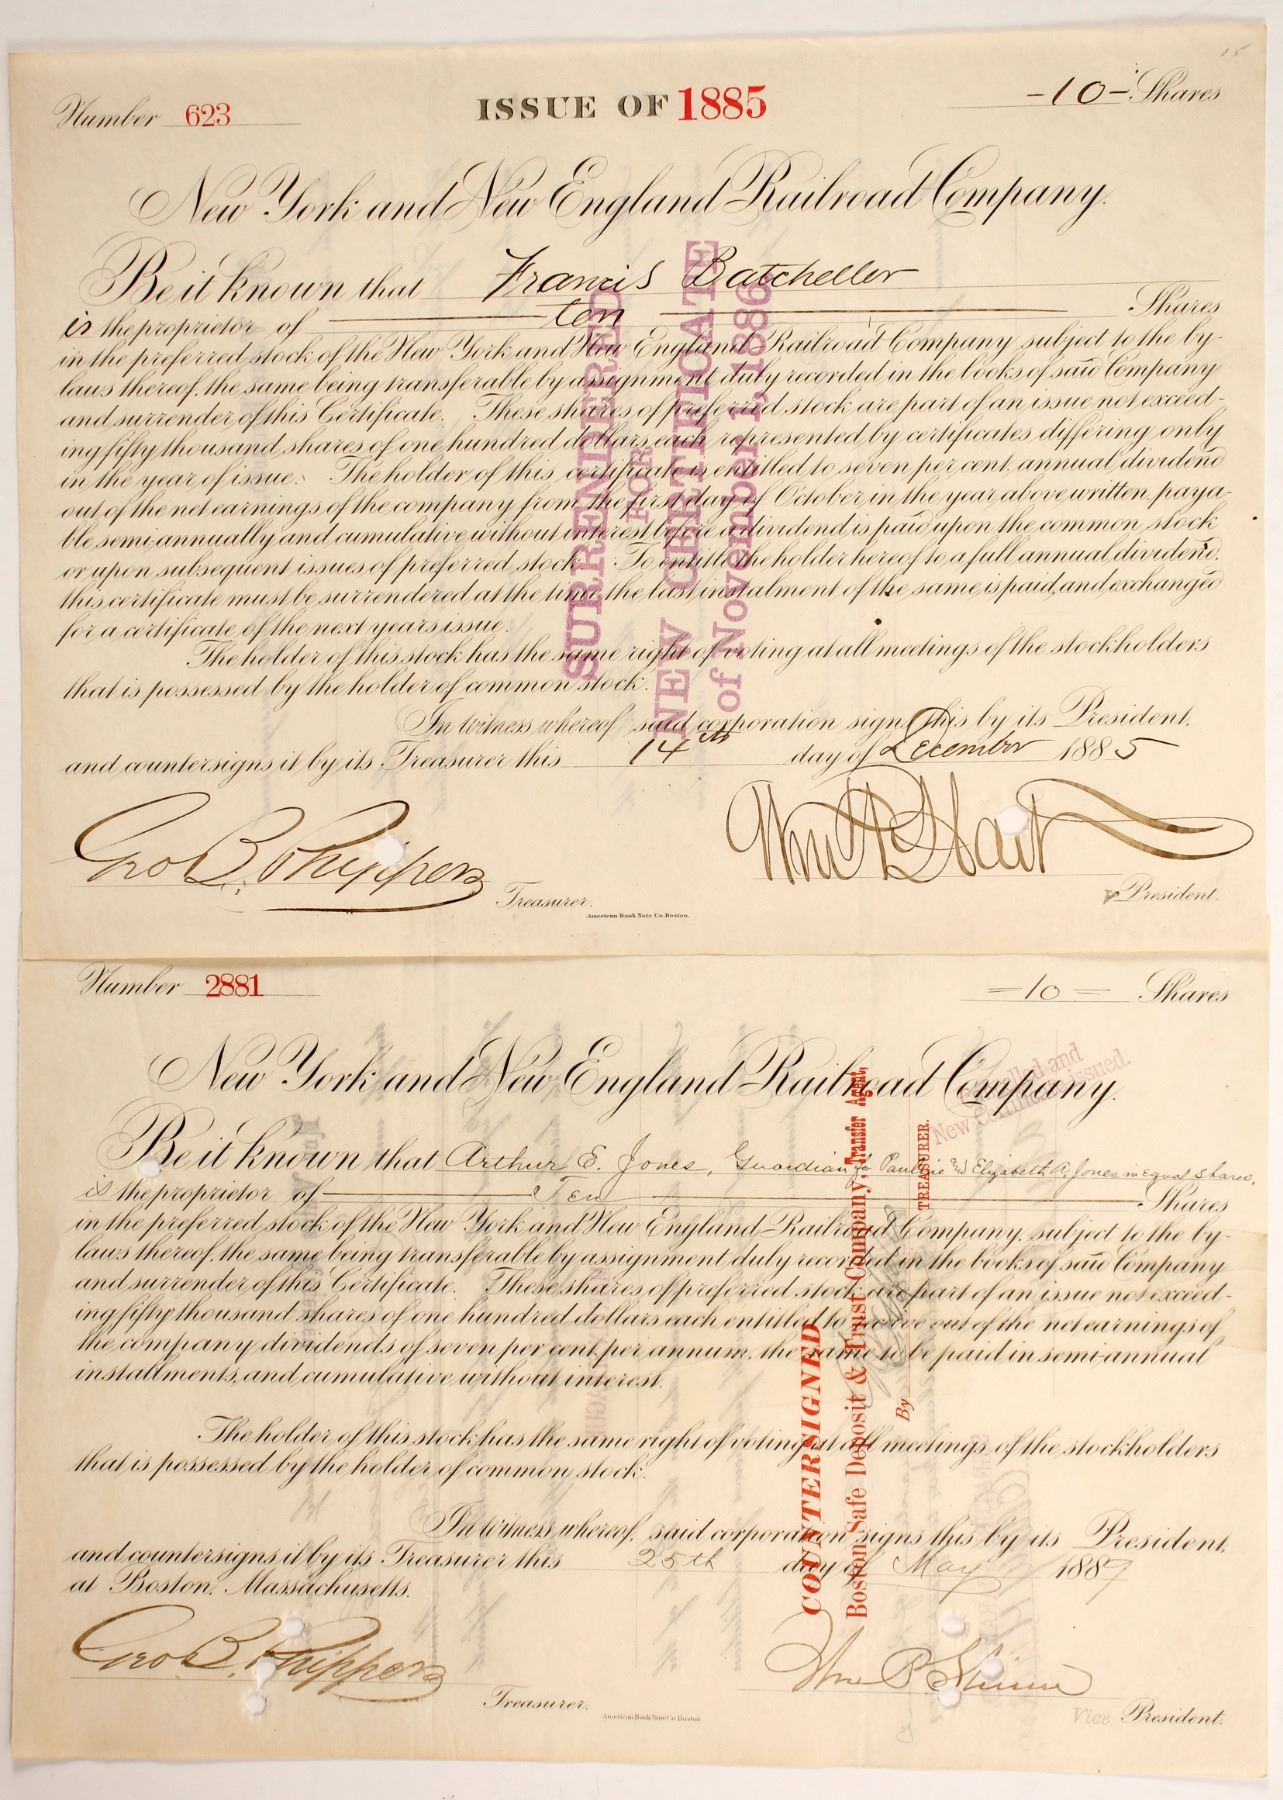 15
Number 623
ISSUE OF 1885
-10- Shares
New York and New England Railroad Company.
Be it known that Francis Batcheller
is the proprietor of ten Shares
in the preferred stock of the New York and New England Railroad Company subject to the by-
laws thereof, the same being transferable by assignment duly recorded in the books of said Company
and surrender of this Certificate. These shares of preferred stock are part of an issue not exceed-
ing fifty thousand shares of one hundred dollars each represented by certificates differing only
in the year of issue. The holder of this certificate is entitled to seven per cent annual dividend
out of the net earnings of the company from the first day of October in the year above written, paya-
ble semi-annually and cumulative without interest before a dividend is paid upon the common stock
or upon subsequent issues of preferred stock. To entitle the holder hereof to a full annual dividend,
this certificate must be surrendered at the time the last instalment of the same is paid, and exchanged
for a certificate of the next years issue.
The holder of this stock has the same right of voting at all meetings of the stockholders
that is possessed by the holder of common stock.
In witness whereof said corporation signs this by its President,
and countersigns it by its Treasurer this 14th day of December 1885
SURRENDERED
FOR
NEW CERTIFICATE
of November 1, 1886
Geo B. Phippen
Treasurer.
President.
American Bank Note Co. Boston.
Number 2881
-10- Shares
New York and New England Railroad Company.
Be it known that Arthur E. Jones, Guardian for Pauline and Elizabeth A. Jones in equal shares,
is the proprietor of Ten Shares
in the preferred stock of the New York and New England Railroad Company, subject to the by-
laws thereof, the same being transferable by assignment duly recorded in the books of said Company
and surrender of this Certificate. These shares of preferred stock are part of an issue not exceed-
ing fifty thousand shares of one hundred dollars each entitled to receive out of the net earnings of
the company dividends of seven per cent per annum, the same to be paid in semi-annual
installments, and cumulative without interest.
The holder of this stock has the same right of voting at all meetings of the stockholders
that is possessed by the holder of common stock.
In witness whereof, said corporation signs this by its President,
and countersigns it by its Treasurer this 25th day of May 1887
at Boston, Massachusetts.
and
New issued.
COUNTERSIGNED
Boston Safe Deposit & Trust Company, Transfer Agent,
By TREASURER.
Geo B. Phippen
Treasurer.
Vice President.
American Bank Note Co. Boston